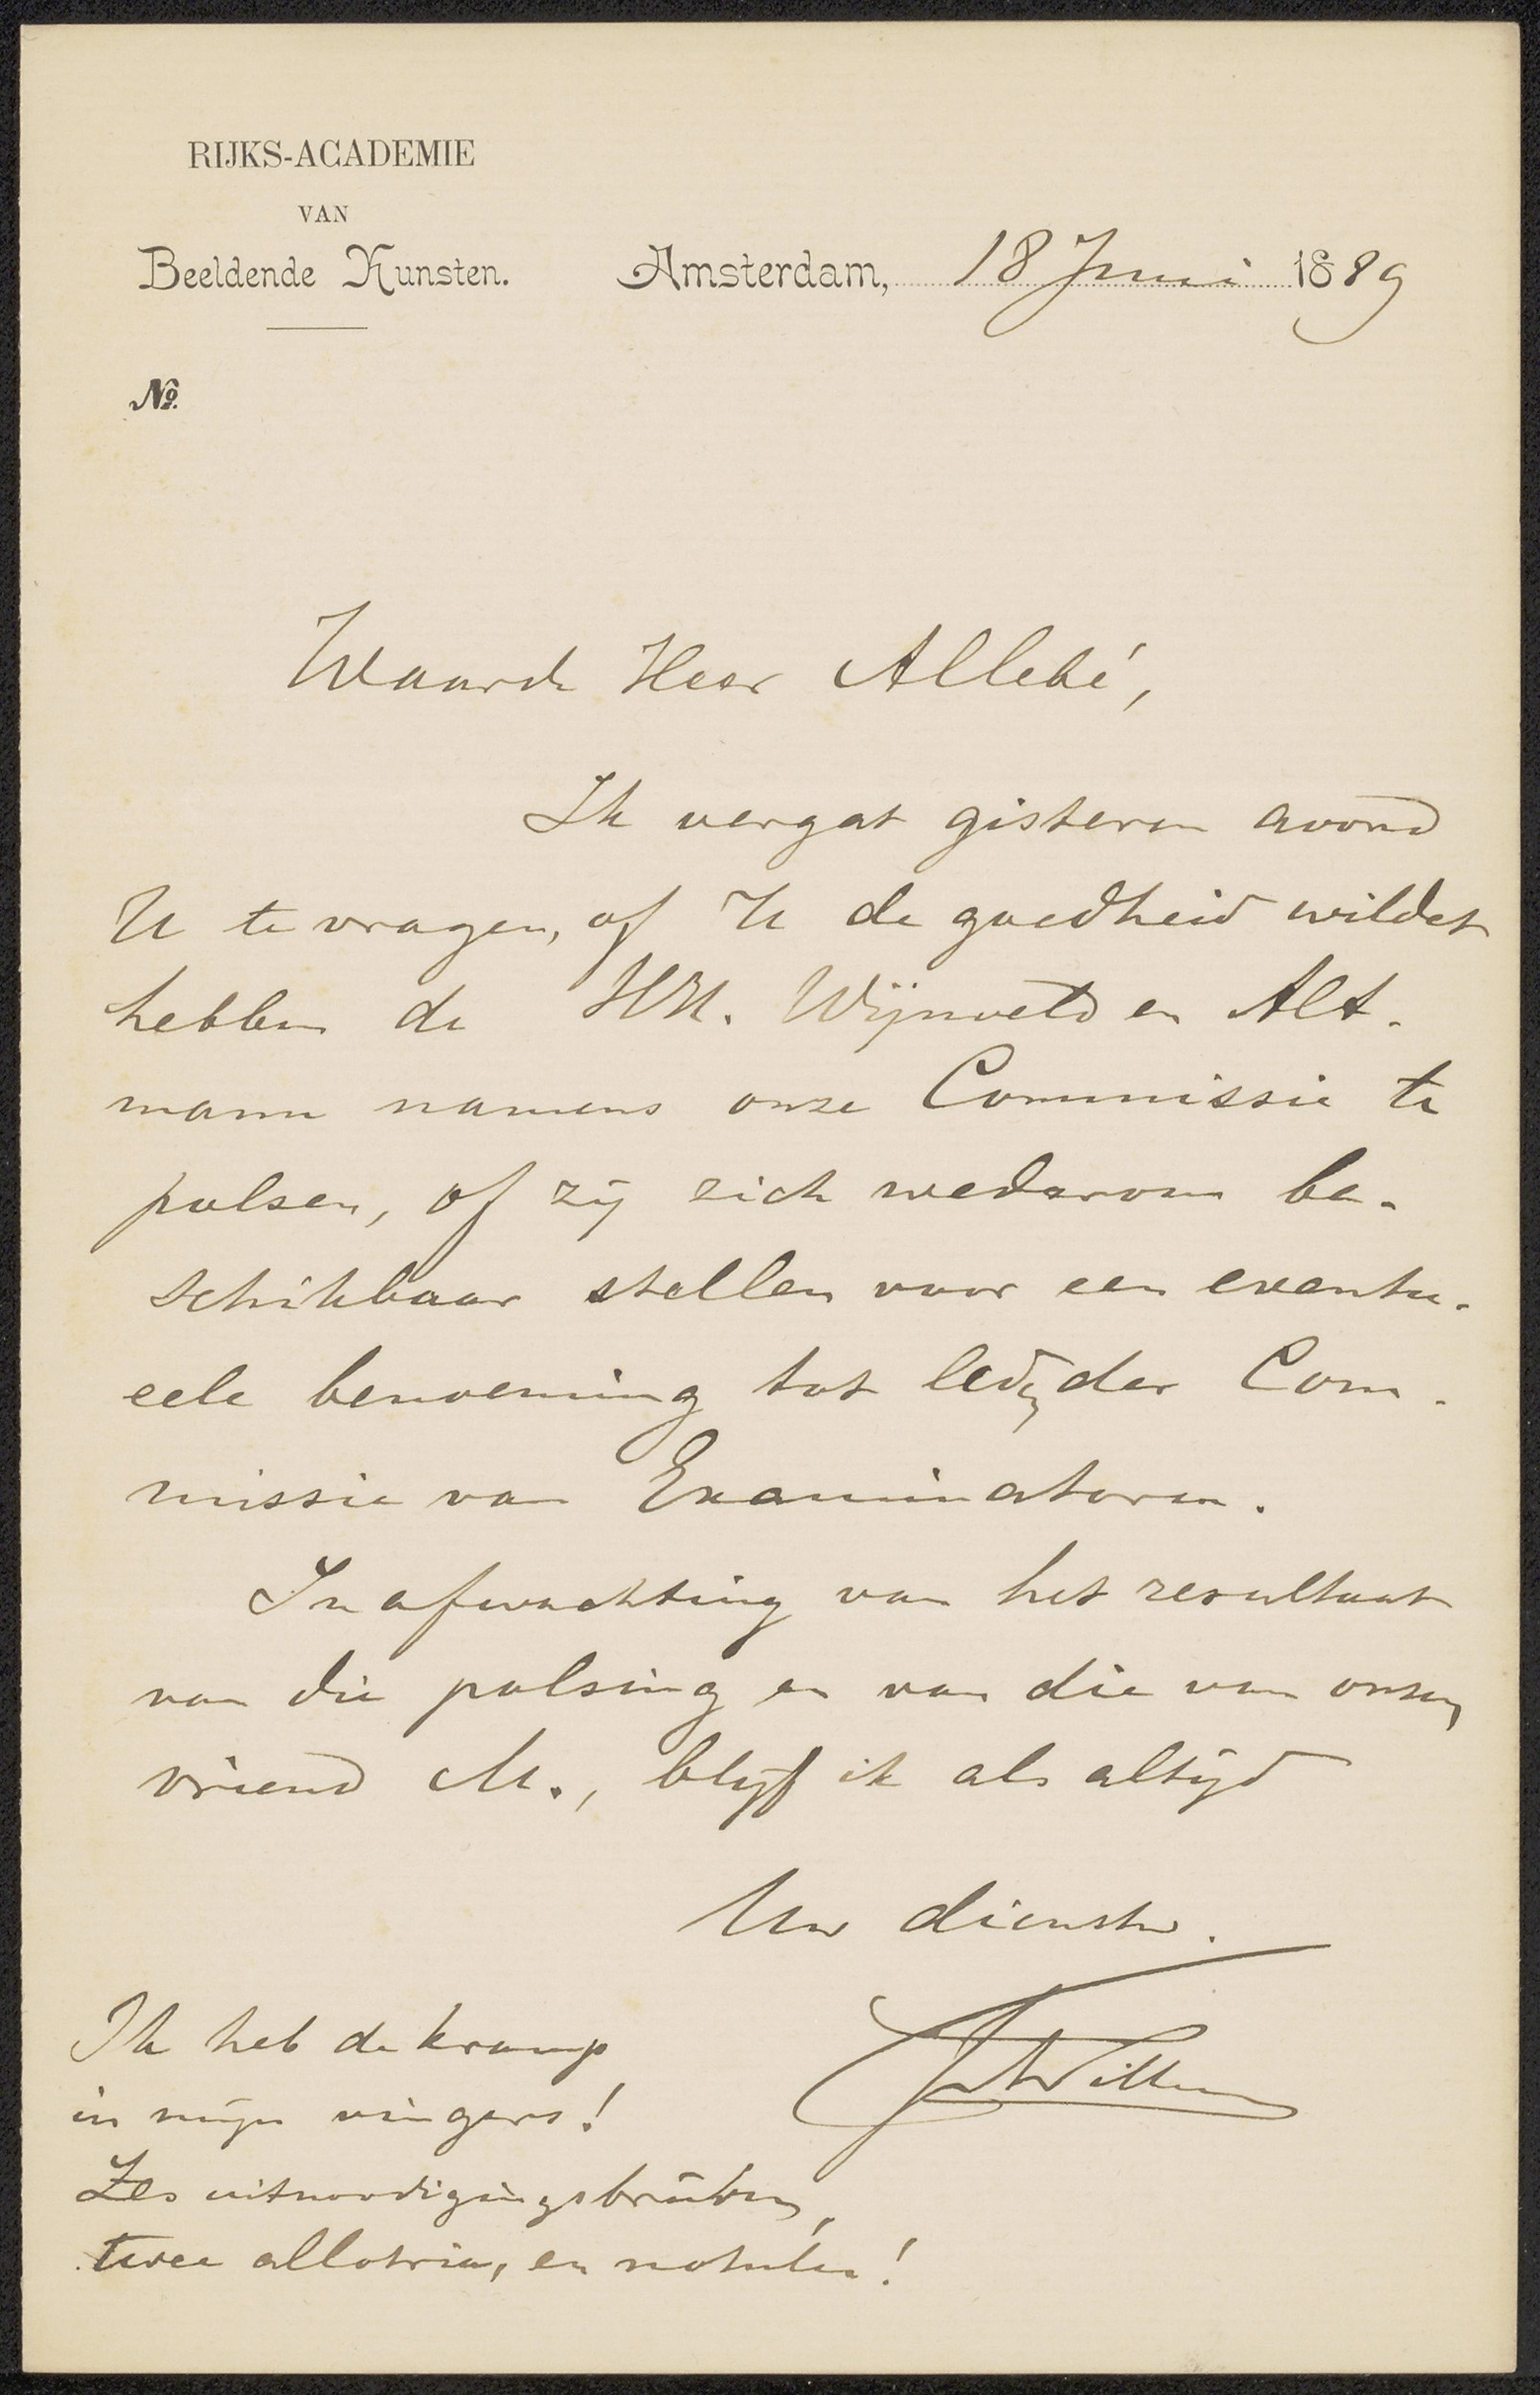 RIJKS-ACADEMIE
VAN
Beeldende Kunsten.
Amsterdam, 18 Juni 1889
No.
Waarde Heer Allebé,
Ik vergat gisteren avond
U te vragen, of U de goedheid wildet
hebben de HH. Wijnveld en Alt-
mann namens onze Commissie te
polsen, of zij zich wederom be-
schikbaar stellen voor een eventu-
eele benoeming tot leden der Com-
missie van Examinatoren.
In afwachting van het resultaat
van die polsing en van die van onzen
vriend M., blijf ik als altijd
Uw dienstw.
Ik heb de kramp
in mijn vingers!
Zes uitnoodigingsbrieven,
twee allotria, en notulen!